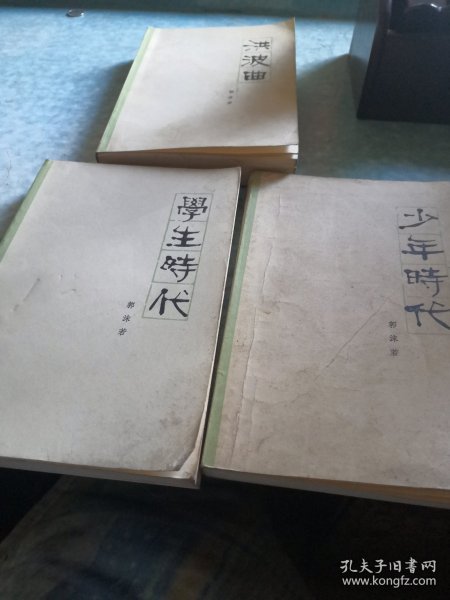 洪波曲
郭沫若
學生時代
郭沫若
少年時代
郭沫若
孔夫子旧书网
www.kongfz.com